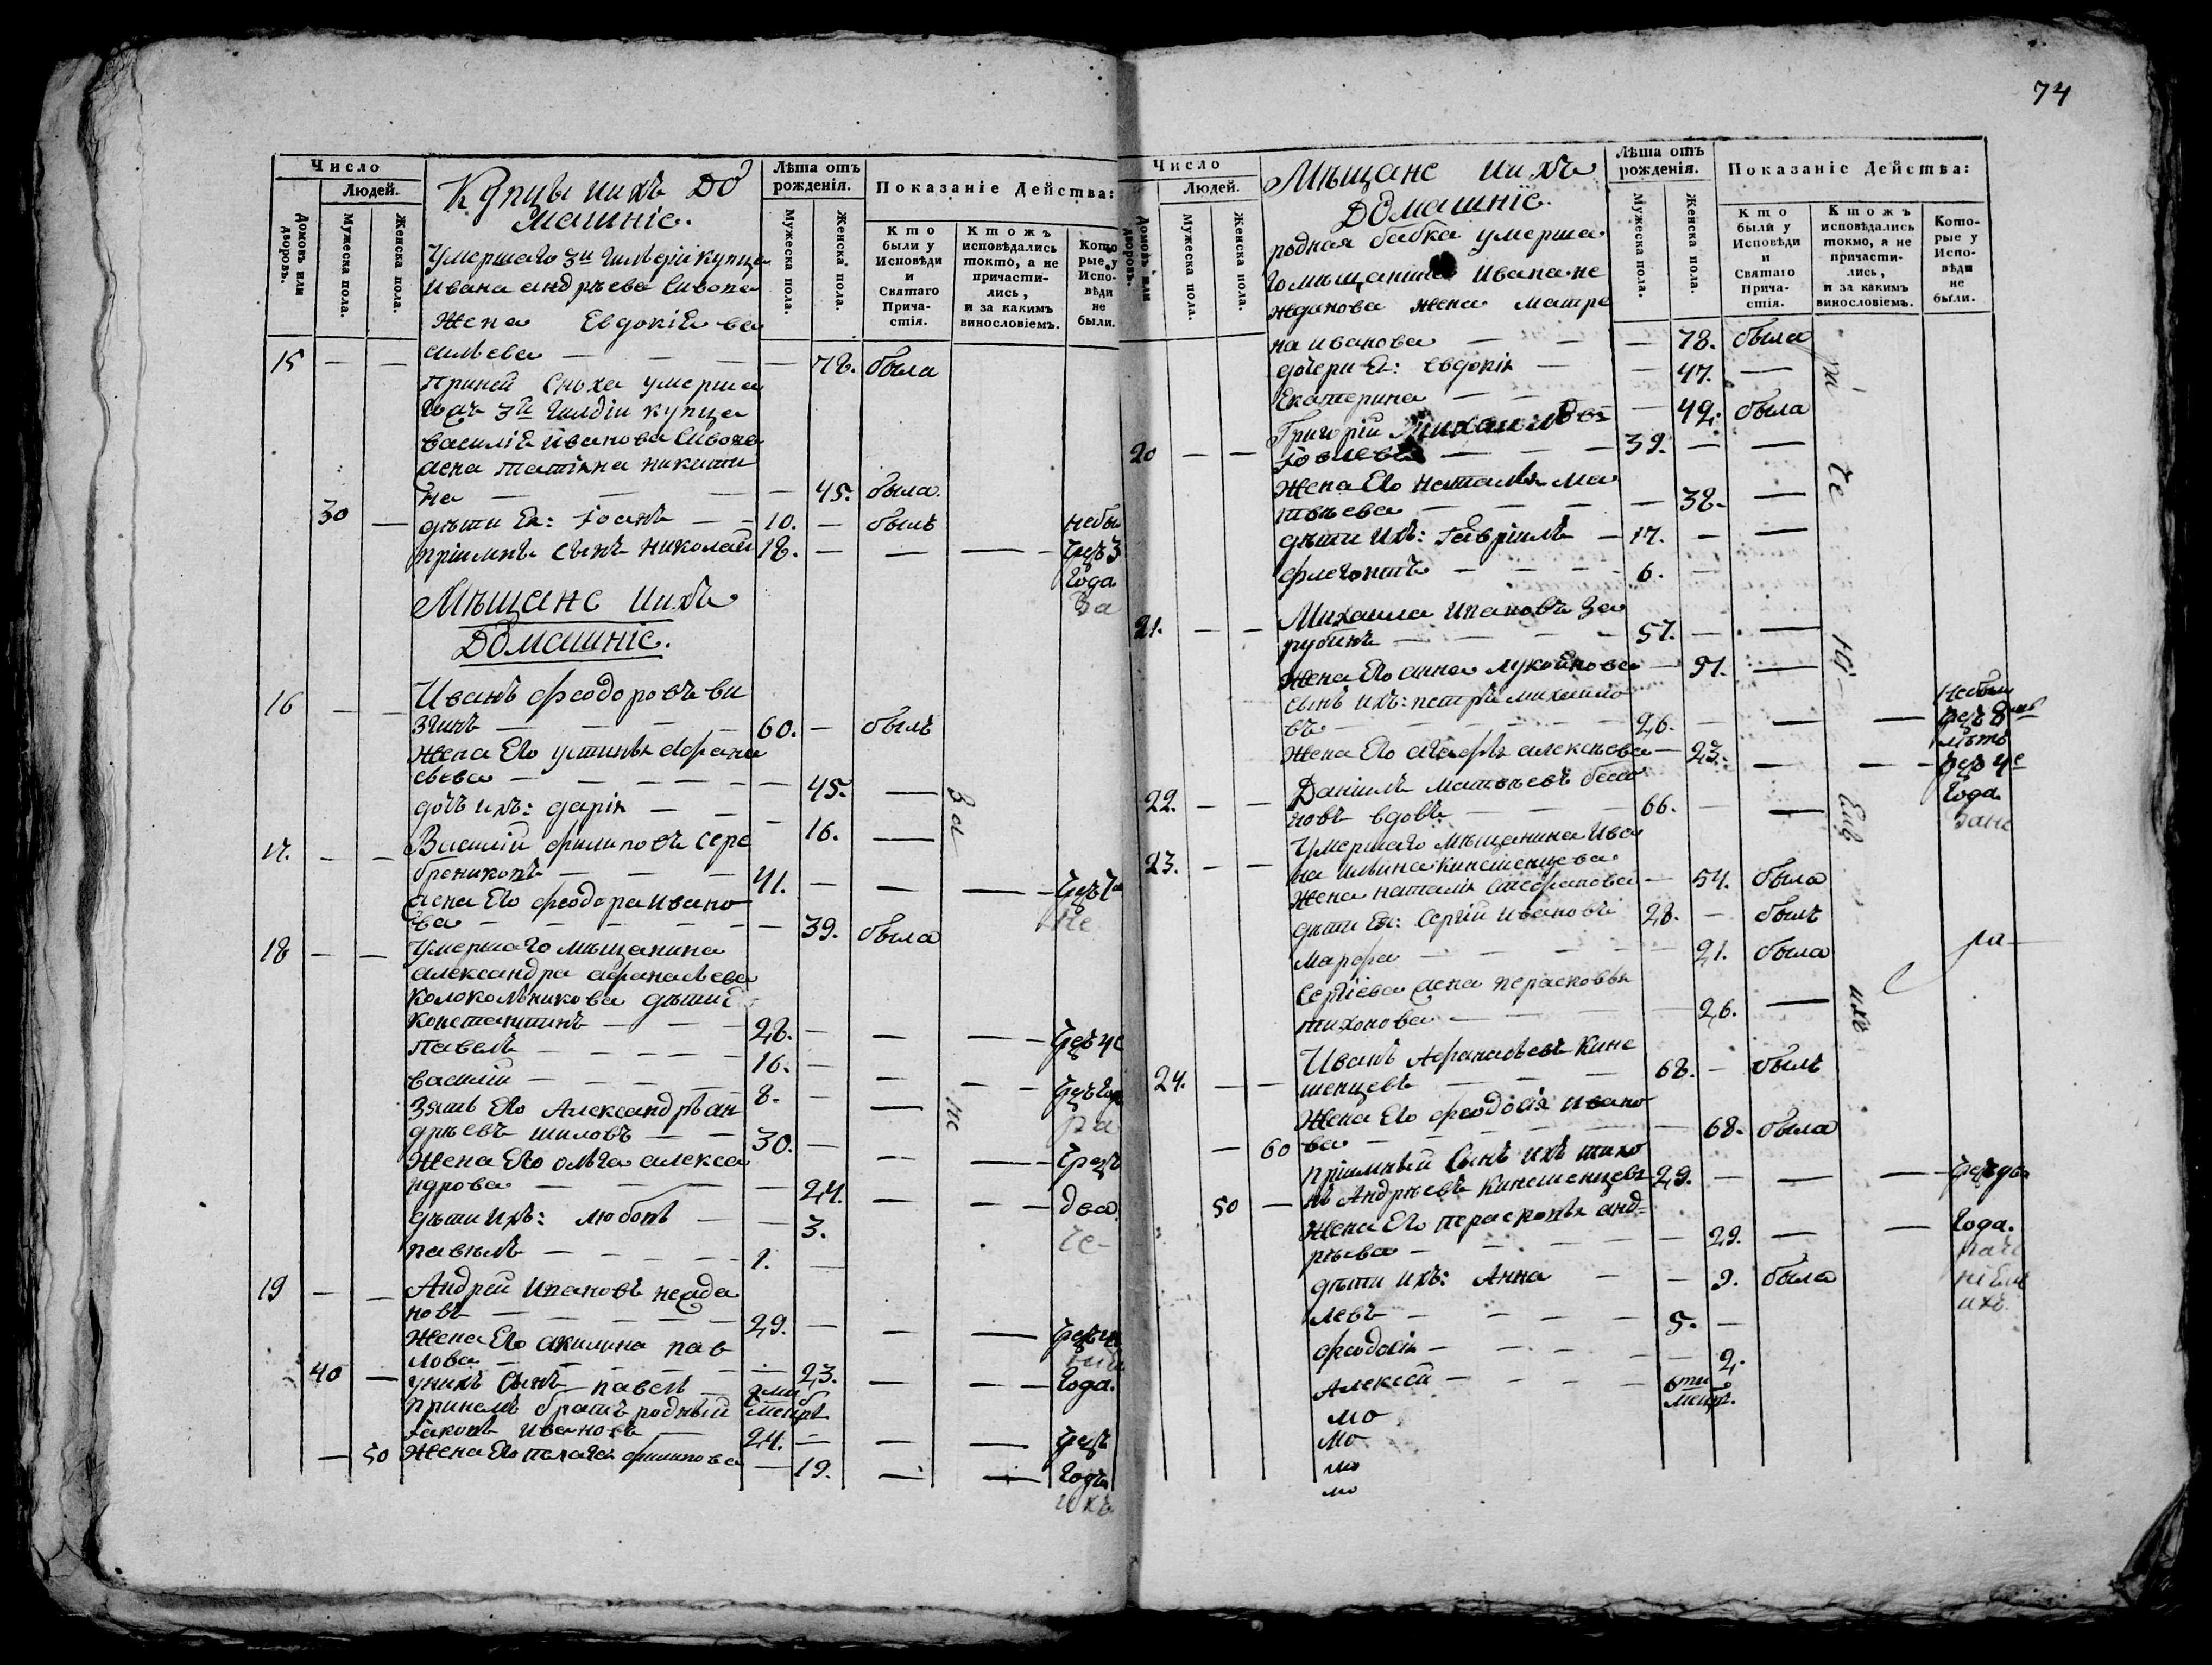 74
Число
Людей.
Домовъ или дворовъ.
Мужеска пола.
Женска пола.
Купцы и ихъ до
машніе.
Лѣта отъ рожденія.
Мужеска пола.
Женска пола.
Показаніе Действа:
Кто были у Исповѣди и Святаго Причастія.
Ктожъ исповѣдались токмо, а не причастились, и за какимъ винословіемъ.
Которые у Исповѣди не были.
Умершаго 3й гильдіи купца
Ивана Андреева
Жена Евдокія Ва
15 — — сильева — — — — 78. была
При ней сноха умерша
го 3й гилдіи купца
Василія Иванова
жена Татіяна Никити
на — — — — 45. была.
30 — дѣти Ея: Іоанъ — — 10. — былъ
пріимнъ сынъ Николай 18. — — — чрез 3
года
За
Мѣщане и ихъ
Домашніе.
16 — — Иванъ Феодоровъ Ви
зинъ — — — 60. — былъ
Жена Его Устинья Афана
сьева — — — — 45. —
дочь ихъ: Дарія — — — 16. —
За
17. — — Василій Филиповъ Сере
брениковъ — — — 41. — — —
жена Его Феодора Ивано
ва — — — — 39. была
не
18 — — Умершаго мѣщанина
Александра Афанасьева
Колоколникова дѣти
Константинъ — — — 28. — — — чрез
Павелъ — — — — 16. —
Василій — — — — 8. — —
не
ра
Зять Его Александръ Ан
дреевъ Шиловъ — — 30. — — — чрезъ
Жена Его Ольга Алекса
ндрова — — — — 24. — — два
дѣти ихъ: Любовь — — 3.
че
Павелъ — — — — 1. —
19 — — Андрей Ивановъ Нежда
новъ — — — — 29. — — —
Жена Его Акилина Пав
лова — — — — 23. — — года.
40 — у нихъ сынъ Павелъ —
При немъ братъ родный
Іаковъ Ивановъ — 24. — — — чрезъ
— 50 Жена Его Пелагея Филипова — 19. — — годъ
ихъ
Число
Людей.
Домовъ или дворовъ.
Мужеска пола.
Женска пола.
Мѣщане и ихъ
Домашніе.
Лѣта отъ рожденія.
Мужеска пола.
Женска пола.
Показаніе Действа:
Кто были у Исповѣди и Святаго Причастія.
Ктожъ исповѣдались токмо, а не причастились, и за какимъ винословіемъ.
Которые у Исповѣди не были.
родная бабка умерша
го мѣщанина Ивана Не
жданова жена Матре
на Иванова — — — 78. была
дочери Ея: Евдокія — — 47. —
Екатерина — — — — 42. была
ра
Григорій Михаиловъ
20 — — — — — 39. — —
че
Жена Его Наталья Ма
твѣева — — — — 38. —
дѣти ихъ: Гавріилъ — 17. — —
Флегонтъ — — — — 6. —
21. — — Михаила Ивановъ За
рубинъ — — — — 57. — —
ні
Жена Его Анна Лукоянова — 51. —
сынъ ихъ: Петръ Михаило
въ — — — — 26. — — —
Жена Его Агафья Алексѣева — 23. — —
22. — — Даніилъ Матвѣевъ
вдовъ — — — 66. — —
года
23. — — Умершаго мѣщанина Ива
на Ильина Кинешенцева
Жена Наталія Стефанова — 54. была
дѣти Ея: Сергій Ивановъ 28. — былъ
Марфа — — — — 21. была
ра
Сергіева жена Перасковья
Тихонова — — — — 26. —
ихъ
24. — — Иванъ Афанасьевъ Кине
шенцевъ — — — 68. — былъ
Жена Его Феодосія Ивано
— 60 ва — — — — 68. была
Пріимный сынъ ихъ Тихо
50 — нъ Андреевъ Кинешенцевъ 29. — — — чрезъ два
Жена Его Перасковья Анд
рѣева — — — — 29. — — года.
дѣти ихъ: Анна — — 9. была
Левъ — — — — 5. —
Феодосія — — — — 2.
Алексѣй — — — — 6ти мѣсяц.
ихъ.
мо
мо
мо
мо